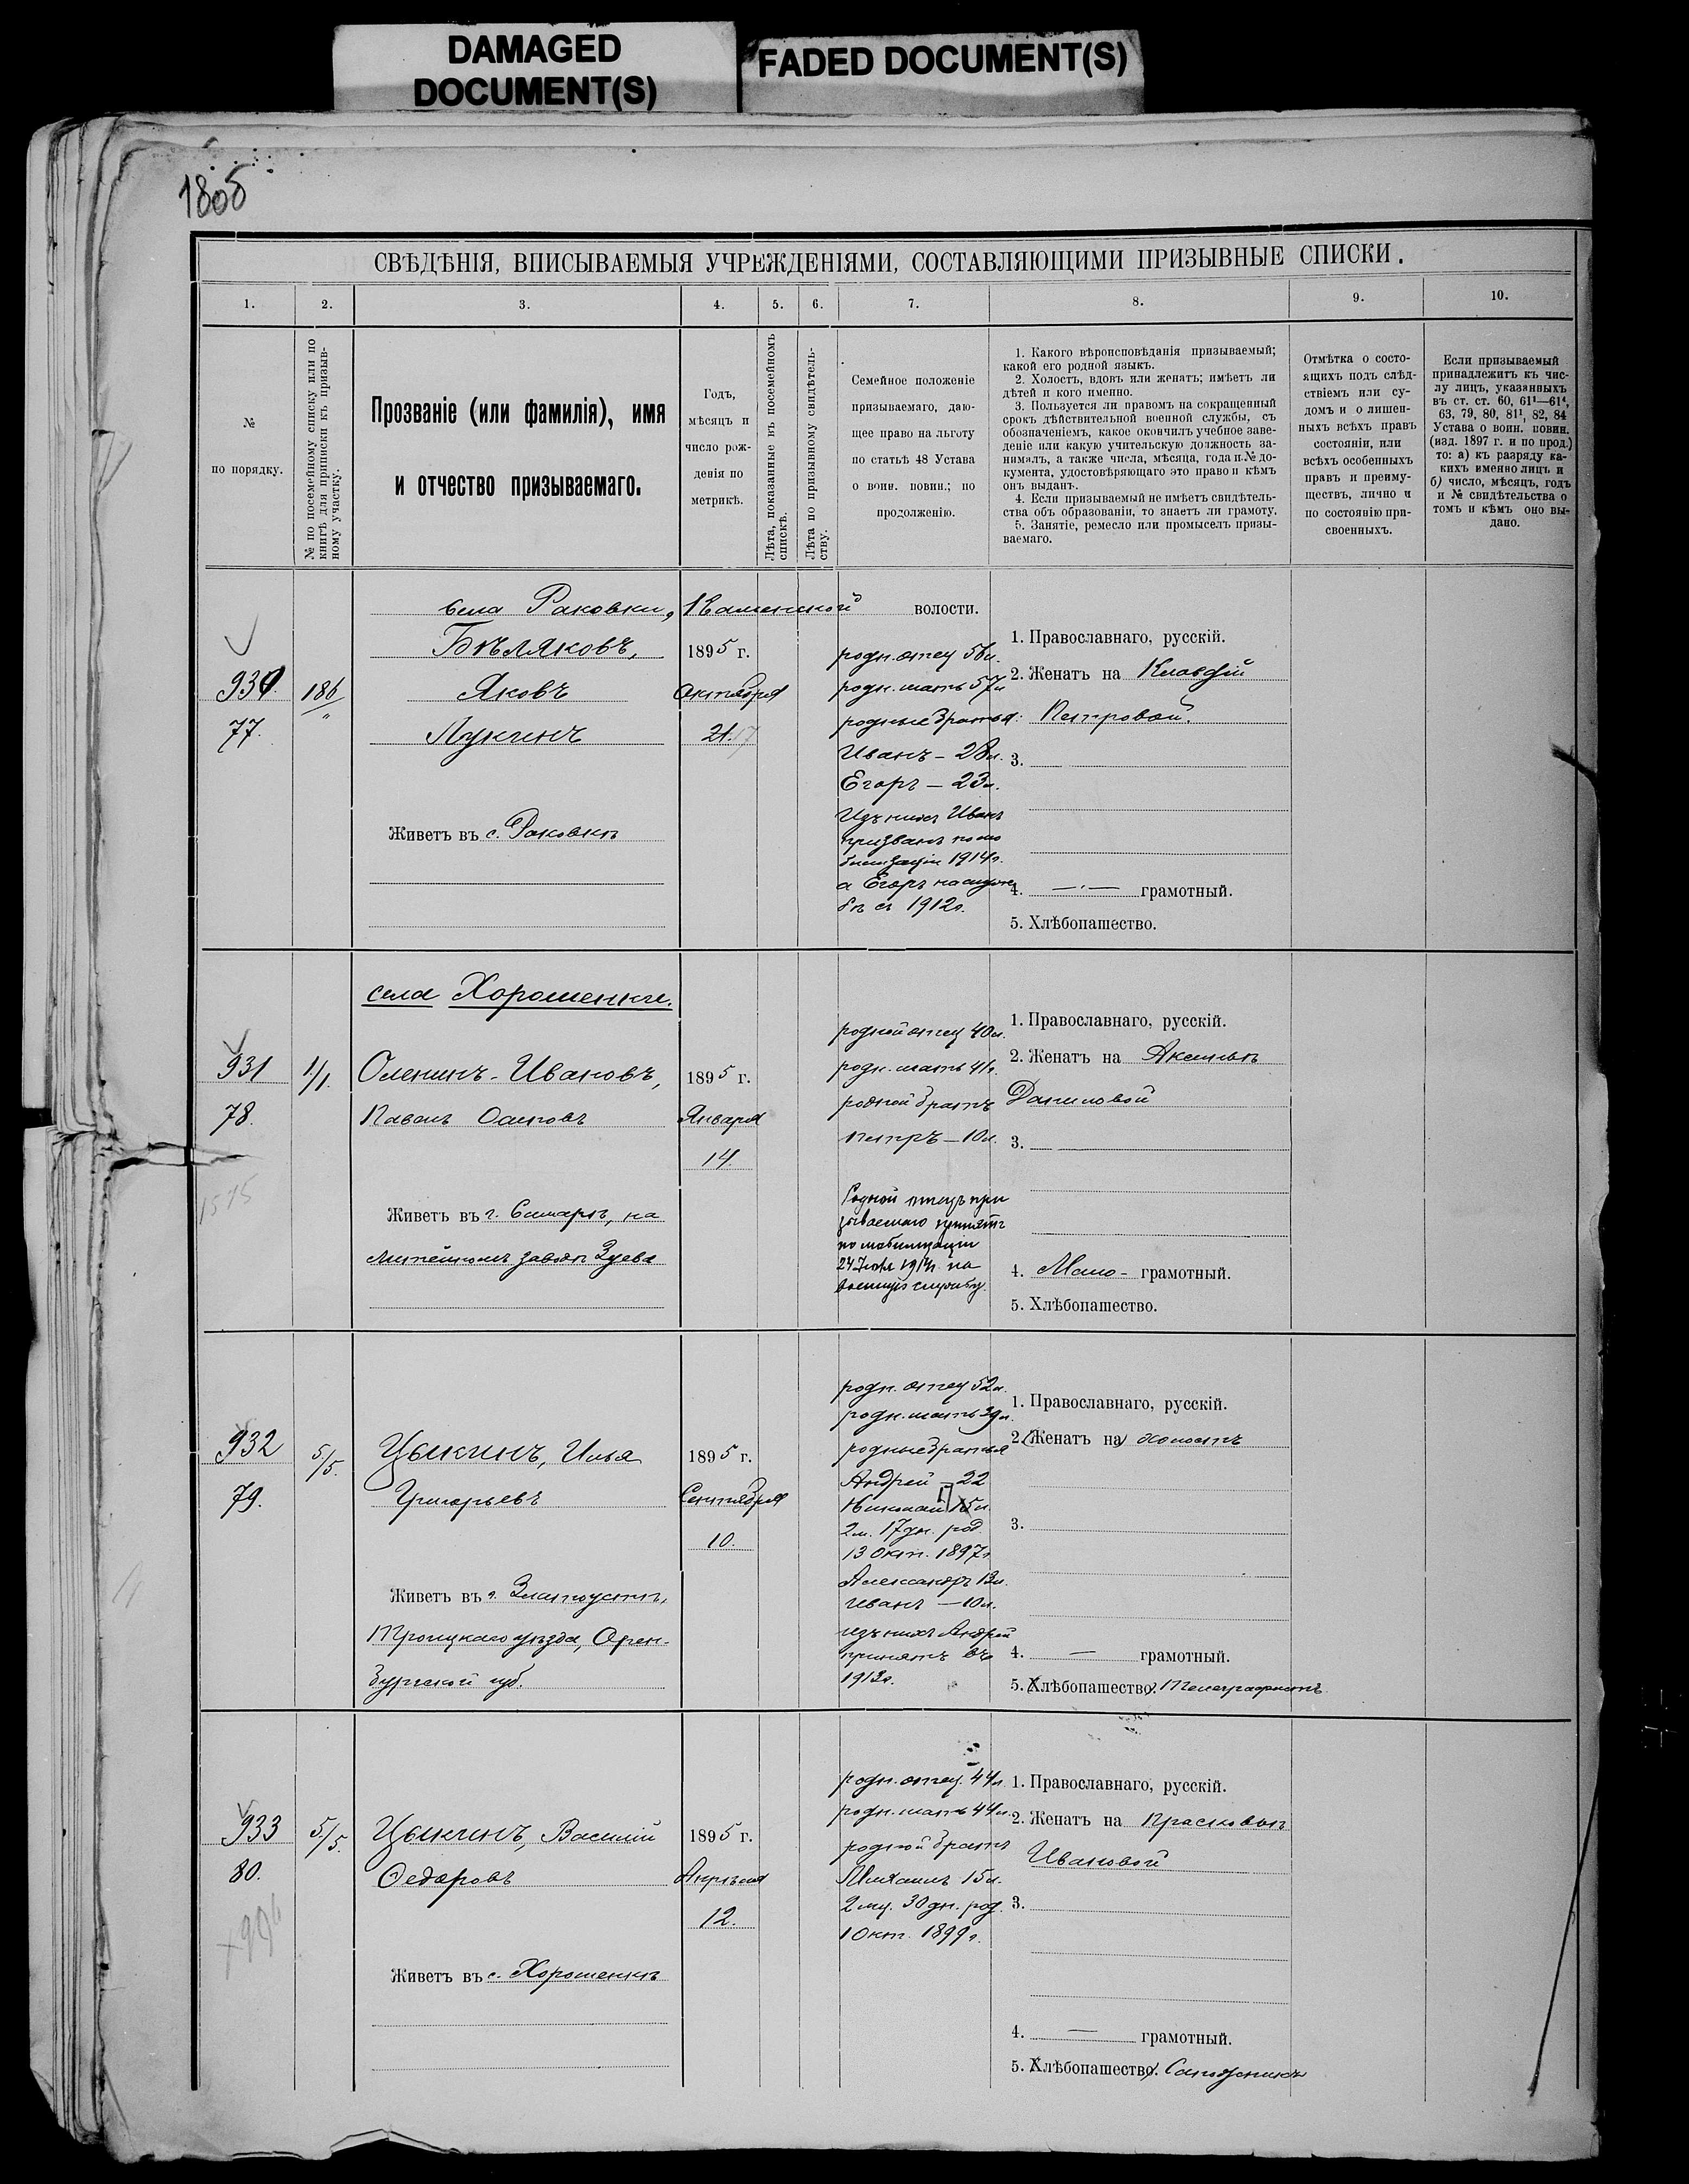 DAMAGED
DOCUMENT(S)
FADED DOCUMENT(S)
1805
СВѢДѢНІЯ, ВПИСЫВАЕМЫЯ УЧРЕЖДЕНІЯМИ, СОСТАВЛЯЮЩИМИ ПРИЗЫВНЫЕ СПИСКИ.
1.
2.
3.
4.
5.
6.
7.
8.
9.
10.
№
по порядку.
№ по посемейному списку или по
книгѣ для приписки къ призыв-
ному участку.
Прозваніе (или фамилія), имя
и отчество призываемаго.
Годъ,
мѣсяцъ и
число рож-
денія по
метрикѣ.
Лѣта, показанные въ посемейномъ
спискѣ.
Лѣта по призывному свидѣтель-
ству.
Семейное положеніе
призываемаго, даю-
щее право на льготу
по статьѣ 48 Устава
о воин. повин.; по
продолженію.
1. Какого вѣроисповѣданія призываемый;
какой его родной языкъ.
2. Холостъ, вдовъ или женатъ; имѣетъ ли
дѣтей и кого именно.
3. Пользуется ли правомъ на сокращенный
срокъ дѣйствительной военной службы, съ
обозначеніемъ, какое окончилъ учебное заве-
деніе или какую учительскую должность за-
нималъ, а также числа, мѣсяца, года и № до-
кумента, удостовѣряющаго это право и кѣмъ
онъ выданъ.
4. Если призываемый не имѣетъ свидѣтель-
ства объ образованіи, то знаетъ ли грамоту.
5. Занятіе, ремесло или промыселъ призы-
ваемаго.
Отмѣтка о состо-
ящихъ подъ слѣд-
ствіемъ или су-
домъ и о лишен-
ныхъ всѣхъ правъ
состояніи, или
всѣхъ особенныхъ
правъ и преиму-
ществъ, лично и
по состоянію при-
своенныхъ.
Если призываемый
принадлежитъ къ чис-
лу лицъ, указанныхъ
въ ст. ст. 60, 61¹—61⁴,
63, 79, 80, 81¹, 82, 84
Устава о воин. повин.
(изд. 1897 г. и по прод.)
то: а) къ разряду ка-
кихъ именно лицъ и
б) число, мѣсяцъ, годъ
и № свидѣтельства о
томъ и кѣмъ оно вы-
дано.
Села Раковки, волости.
930.
77.
186/"
Бѣляковъ,
Яковъ
Лукинъ
Живетъ въ с. Раковкѣ
1895 г.
Октября
21.
родн. отец 56 л.
родн. мать 57 л
родные братья:
Иванъ — 28 л.
Егоръ — 23 л.
Изъ нихъ Иванъ
призванъ по мо
билизаціи 1914 г.
а Егоръ на служ
бѣ съ 1912 г.
1. Православнаго, русскій.
2. Женатъ на Клавдіи
Петровой.
3.
4. —·— грамотный.
5. Хлѣбопашество.
села Хорошенки.
931
78.
1/1.
1575
Оленинъ-Ивановъ,
Павелъ Осиповъ
Живетъ въ г. Самарѣ, на
литейномъ заводѣ Зуева
1895 г.
Января
14.
родной отец 40 л.
родн. мать 41 г.
родной братъ
Петръ — 10 л.
Родной отецъ при
зываемаго принятъ
по мобилизаціи
24 Іюля 1914 г. на
военную службу.
1. Православнаго, русскій.
2. Женатъ на Аксиньѣ
Даниловой
3.
4. Мало- грамотный.
5. Хлѣбопашество.
932
79.
5/5.
Цыкинъ, Илья
Григорьевъ
Живетъ въ г. Златоустѣ,
Троицкаго уѣзда, Орен-
бургской губ.
1895 г.
Сентября
10.
родн. отец 52 л.
родн. мать 39 л.
родные братья
Андрей — 22
Николай 15 л.
2 м. 17 дн. род.
13 Окт. 1897 г
Александръ 13 л.
Иванъ — 10 л.
изъ нихъ Андрей
принятъ въ
1913 г.
1. Православнаго, русскій.
2. (Женатъ на) холостъ
3.
4. — грамотный.
5. Хлѣбопашество. Телеграфистъ
933
80.
5/5.
Цыкинъ, Василій
Федоровъ
Живетъ въ с. Хорошенкѣ
1895 г.
Апрѣля
12.
родн. отец. 44 л.
родн. мать 44 л.
родной братъ
Михаилъ 15 л.
2 мц. 30 дн. род.
1 Окт. 1899 г.
1. Православнаго, русскій.
2. Женатъ на Прасковьѣ
Ивановой
3.
4. — грамотный.
5. Хлѣбопашество. Сапожникъ